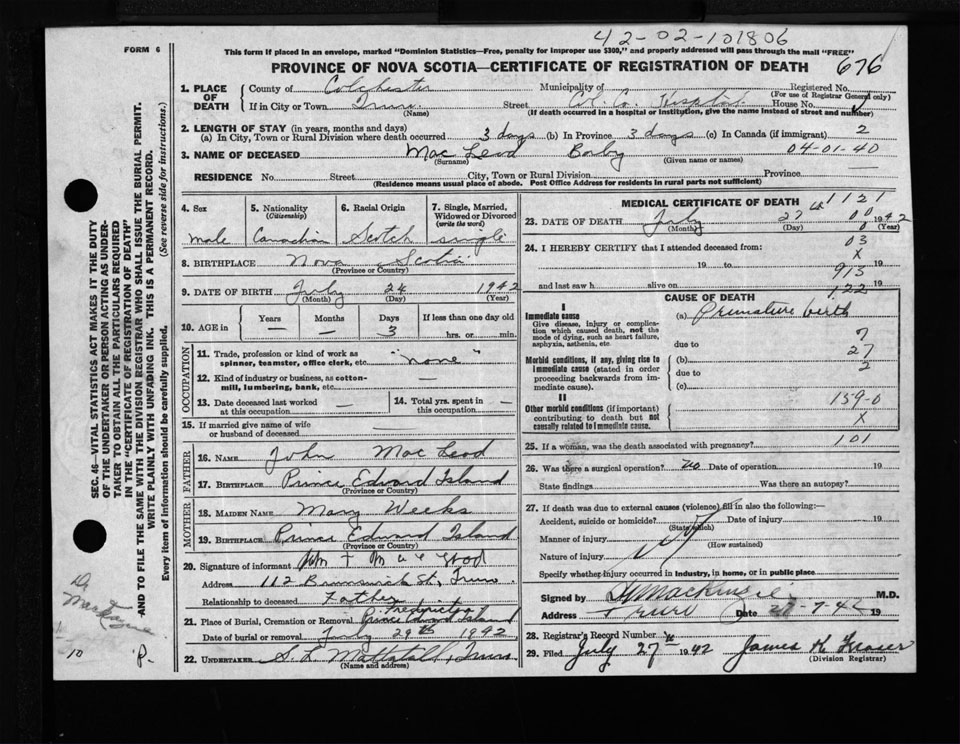 42-02-101806
FORM 6
This form if placed in an envelope, marked "Dominion Statistics—Free, penalty for improper use $300," and properly addressed will pass through the mail "FREE"
PROVINCE OF NOVA SCOTIA—CERTIFICATE OF REGISTRATION OF DEATH 676
1. PLACE OF DEATH County of Colchester Municipality of Registered No.
(For use of Registrar General only)
If in City or Town Truro Street Col. Co. Hospital House No.
(Name) (If death occurred in a hospital or institution, give the name instead of street and number)
2. LENGTH OF STAY (in years, months and days)
(a) In City, Town or Rural Division where death occurred 3 days (b) In Province 3 days (c) In Canada (if immigrant) 2
3. NAME OF DECEASED Mac Leod Baby 04-01-40
(Surname) (Given name or names)
RESIDENCE No. Street City, Town or Rural Division Province —
(Residence means usual place of abode. Post Office Address for residents in rural parts not sufficient)
4. Sex 5. Nationality (Citizenship) 6. Racial Origin 7. Single, Married, Widowed or Divorced (write the word)
male Canadian Scotch single
8. BIRTHPLACE Nova Scotia
(Province or Country)
9. DATE OF BIRTH July 24 1942
(Month) (Day) (Year)
10. AGE in Years Months Days If less than one day old
— — 3 hrs. or min.
OCCUPATION
11. Trade, profession or kind of work as spinner, teamster, office clerk, etc. "none"
12. Kind of industry or business, as cotton-mill, lumbering, bank, etc. —
13. Date deceased last worked at this occupation — 14. Total yrs. spent in this occupation —
15. If married give name of wife or husband of deceased
FATHER
16. NAME John Mac Leod
17. BIRTHPLACE Prince Edward Island
(Province or Country)
MOTHER
18. MAIDEN NAME Mary Weeks
19. BIRTHPLACE Prince Edward Island
(Province or Country)
20. Signature of informant
Address 112 Brunswick St, Truro.
Relationship to deceased Father
21. Place of Burial, Cremation or Removal Fredricton Prince Edward Island
Date of burial or removal July 29th 1942
22. UNDERTAKER S. L. Mattatall, Truro
(Name and address)
MEDICAL CERTIFICATE OF DEATH
1121
23. DATE OF DEATH July 27 1942
(Month) (Day) (Year)
00
0
24. I HEREBY CERTIFY that I attended deceased from:
03
X
19 to 19
913
and last saw h alive on 19
122
CAUSE OF DEATH
I
Immediate cause
Give disease, injury or complication which caused death, not the mode of dying, such as heart failure, asphyxia, asthenia, etc.
(a) Premature birth
due to 7
Morbid conditions, if any, giving rise to immediate cause (stated in order proceeding backwards from immediate cause).
(b) 27
due to 2
(c)
II
Other morbid conditions (if important) contributing to death but not causally related to immediate cause.
159-0
X
25. If a woman, was the death associated with pregnancy? 101
26. Was there a surgical operation? no Date of operation 19
State findings Was there an autopsy?
27. If death was due to external causes (violence) fill in also the following:—
Accident, suicide or homicide? Date of injury 19
(State which)
Manner of injury
(How sustained)
Nature of injury
Specify whether injury occurred in industry, in home, or in public place
Signed by MacKenzie M.D.
Address Truro Date 27-7-42 19
28. Registrar's Record Number
29. Filed July 27 1942 James K. Fraser
(Division Registrar)
SEC. 46—VITAL STATISTICS ACT MAKES IT THE DUTY
OF THE UNDERTAKER OR PERSON ACTING AS UNDER-
TAKER TO OBTAIN ALL THE PARTICULARS REQUIRED
IN THE "CERTIFICATE OF REGISTRATION OF DEATH"
AND TO FILE THE SAME WITH THE DIVISION REGISTRAR WHO SHALL ISSUE THE BURIAL PERMIT.
WRITE PLAINLY WITH UNFADING INK. THIS IS A PERMANENT RECORD.
Every item of information should be carefully supplied. (See reverse side for instructions.)
Dr MacKenzie
10
P.